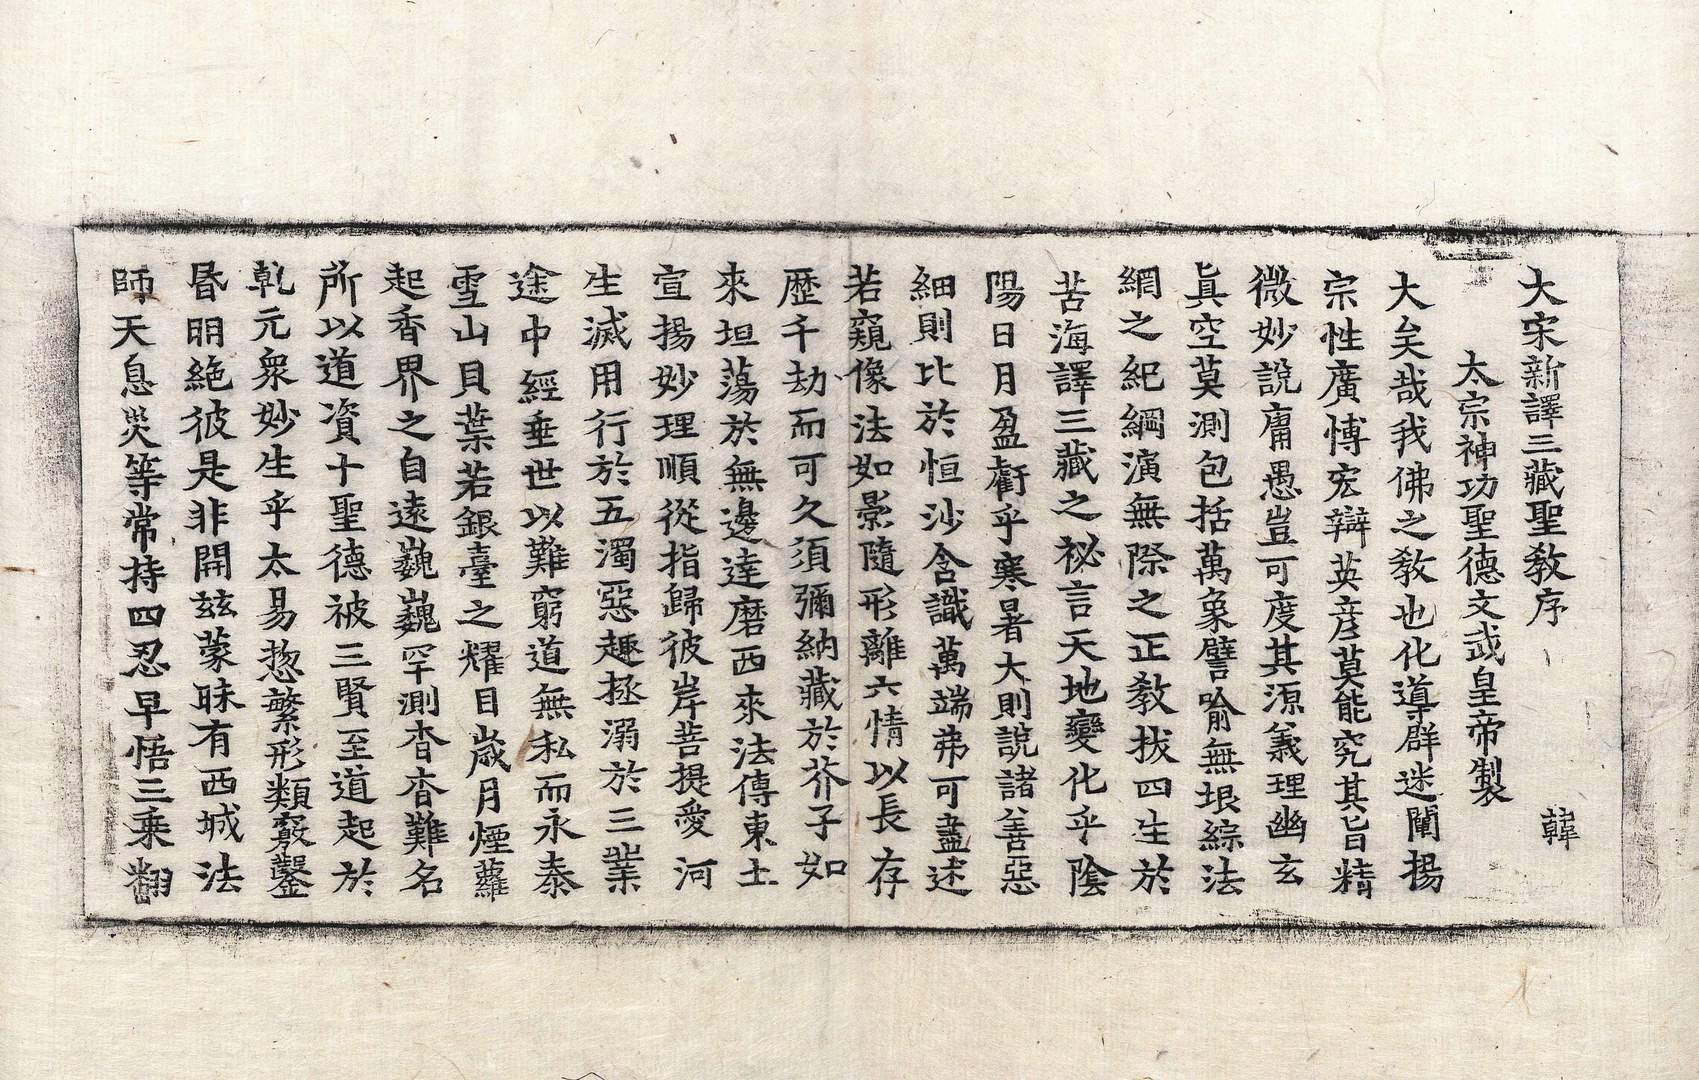 大宋新譯三藏聖敎序 韓
太宗神功聖德文武皇帝製
大矣哉我佛之敎也化導群迷闡揚
宗性廣愽宏辯英彦莫能究其旨精
微妙說庸愚豈可度其源義理幽玄
眞空莫測包括萬象譬喩無垠綜法
綱之紀綱演無際之正敎拔四生於
苦海譯三藏之祕言天地變化乎陰
陽日月盈虧乎寒暑大則說諸善惡
細則比於恒沙含識萬端弗可盡述
若窺像法如影隨形離六情以長存
歷千劫而可久須彌納藏於芥子如
來坦蕩於無邊達磨西來法傳東土
宣揚妙理順從指歸彼岸菩提愛河
生滅用行於五濁惡趣拯溺於三業
途中經垂世以難窮道無私而永泰
雪山貝葉若銀臺之耀目歲月煙蘿
起香界之自遠巍巍罕測杳杳難名
所以道資十聖德被三賢至道起於
乾元衆妙生乎太易惣繁形類竅鑿
昏明絶彼是非開玆蒙昧有西域法
師天息災等常持四忍早悟三乘翻